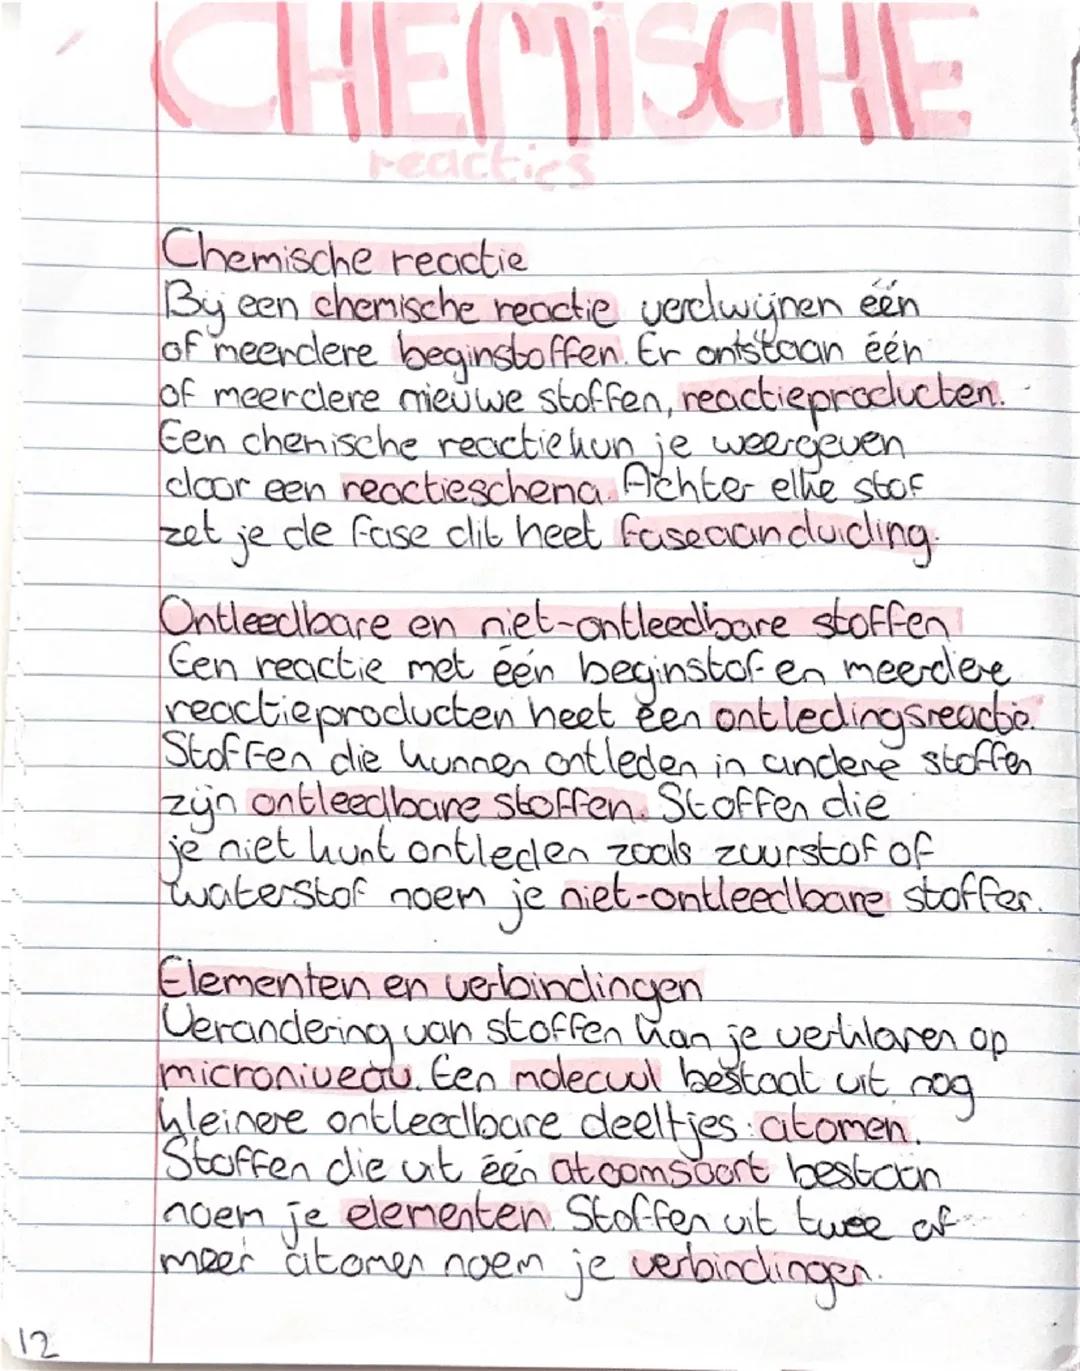 CHEMISCHE
reacties
Chemische reactie
Bij een chemische reactie verdwijnen één
of meerdere beginstoffen. Er ontstaan één
of meerdere nieuwe stoffen, reactieproducten.
Een chemische reactie kun je weergeven
door een reactieschema. Achter elke stof
zet je de fase dit heet faseaanduiding.
Ontleedbare en niet-ontleedbare stoffen
Een reactie met één beginstof en meerdere
reactieproducten heet een ontledingsreactie.
Stoffen die kunnen ontleden in andere stoffen
zijn ontleedbare stoffen. Stoffen die
je niet kunt ontleden zoals zuurstof of
waterstof noem je niet-ontleedbare stoffen.
Elementen en verbindingen
Verandering van stoffen kan je verklaren op
microniveau. Een molecuul bestaat uit nog
kleinere ontleedbare deeltjes: atomen.
Stoffen die uit één atoomsoort bestaan
noem je elementen. Stoffen uit twee of
meer atomen noem je verbindingen.
12